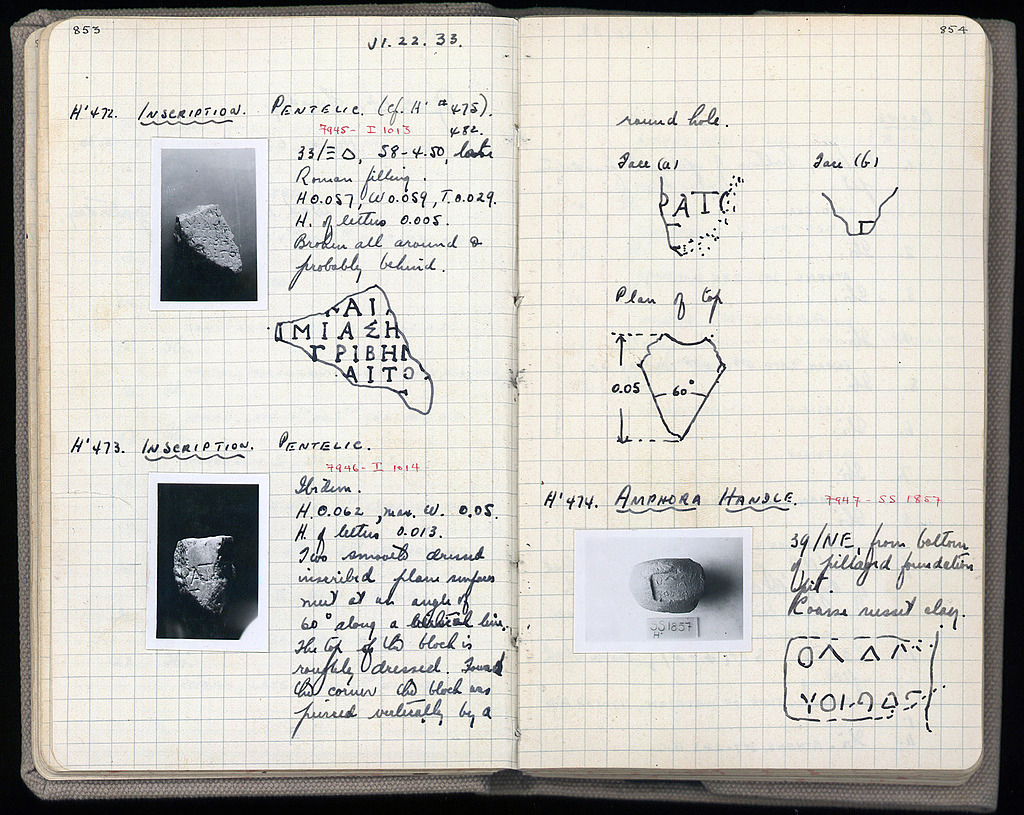 853
VI. 22. 33.
H'472. INSCRIPTION. PENTELIC. (cf. H' #475).
7945- I 1013 482.
33/Ξ Δ, 58-4.50, late
Roman filling.
H 0.057, W 0.059, T. 0.029.
H. of letters 0.005.
Broken all around &
probably behind.
ΑΙ
ΜΙΑΣΗ
ΡΙΒΗ
ΑΙΤΟ
H'473. INSCRIPTION. PENTELIC.
7946- I 1014
Ibidem.
H. 0.062, max. W. 0.05.
H. of letters 0.013.
Two smooth dressed
inscribed plane surfaces
meet at an angle of
60° along a vertical line.
The top of the block is
roughly dressed. Toward
the corner the block was
pierced vertically by a
854
round hole.
Face (a) Face (b)
ΡΑΤΟ
Plan of top
0.05 60°
H'474. AMPHORA HANDLE. 7947- SS 1857
39/NE, from bottom
of pillaged foundation
pit.
Coarse russet clay.
SS 1857
H'